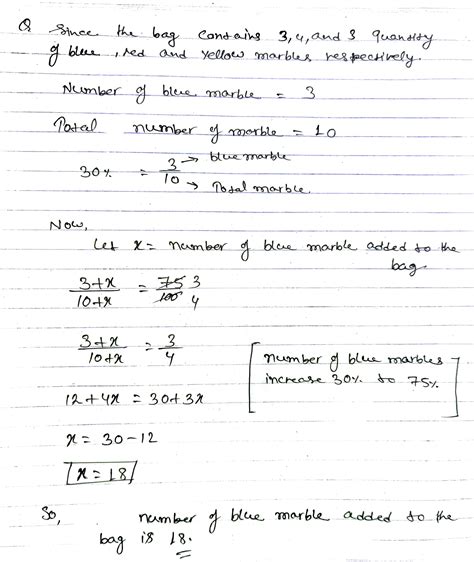 Q Since the bag contains 3, 4, and 3 quantity
of blue, red and yellow marbles respectively.
Number of blue marble = 3
Total number of marble = 10
30% = 3/10 → blue marble
→ Total marble.
Now,
let x = number of blue marble added to the
bag
3+x/10+x = 75/100 3/4
3+x/10+x = 3/4
[number of blue marbles
increase 30% to 75%]
12+4x = 30+3x
x = 30-12
x = 18
So, number of blue marble added to the
bag is 18.